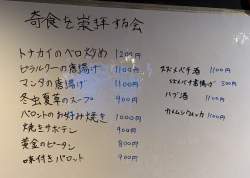 奇食を崇拝する会
トナカイのベロ炒め 1200円
ピラルクーの唐揚げ 1100円
マンタの唐揚げ 1100円
冬虫夏草のスープ 900円
バロットのお好み焼き 1000円
焼きサボテン 900円
黄金のピータン 800円
味付きバロット 900円
スズメバチ酒 1100円
ハブ酒 1100円
カメムシウォッカ 1100円